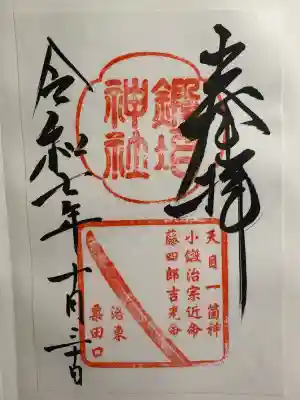 奉拝
鍛冶
神社
天目一箇神
小鍛冶宗近命
藤四郎吉光命
洛東
粟田口
令和七年十月三十日